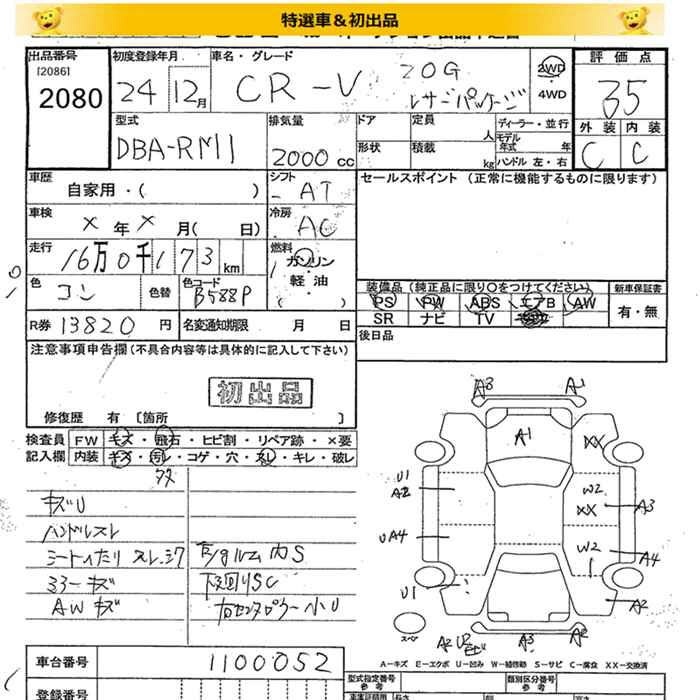 特選車＆初出品
出品番号
[2086]
2080
初度登録年月
24 12月
車名・グレード
CR-V
20G
レザーパッケージ
2WD
4WD
評価点
35
外装 内装
C C
型式
DBA-RM1
排気量
2000 cc
ドア 定員 人
形状 積載 kg
ディーラー・並行
モデル年式 年
ハンドル 左・右
車歴
自家用・( )
シフト
AT
セールスポイント (正常に機能するものに限ります)
車検
× 年 × 月( 日)
冷房
AC
走行
16万0千173km
燃料
ガソリン
軽油
( )
色
コン
色替
色コード
B588P
装備品 (純正品に限り○をつけてください)
新車保証書
PS PW ABS エアB AW
SR ナビ TV
有・無
R券 13820 円
名変通知期限 月 日
後日品
注意事項申告欄(不具合内容等は具体的に記入して下さい)
初出品
修復歴 有 〔箇所 〕
検査員
記入欄
FW キズ・飛石・ヒビ割・リペア跡・×要
内装 キズ・汚レ・コゲ・穴・スレ・キレ・破レ
キズU
ハンドルスレ
シートへたり スレ.シワ
ミラーキズ
AWキズ
E/gルーム内S
下廻りSC
右センタピラー小U
A3 A1
A1
XX
U1
A2
W2
XX
A3
UA4
W2
A4
U1
A2
スペア
A2 U2
A3 A2
A-キズ E-エクボ U-凹み W-補修跡 S-サビ C-腐食 XX-交換済
車台番号
1100052
登録番号
型式指定番号
参考
類別区分番号
参考
車車証有用
長さ
幅
高さ